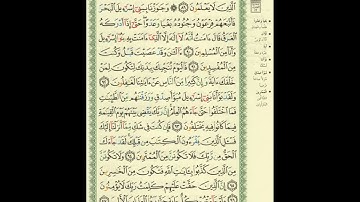 ٱلَّذِينَ لَا يَعْلَمُونَ ٨٩ ۞ وَجَٰوَزْنَا بِبَنِىٓ إِسْرَٰٓءِيلَ ٱلْبَحْرَ
فَأَتْبَعَهُمْ فِرْعَوْنُ وَجُنُودُهُۥ بَغْيًا وَعَدْوًا حَتَّىٰٓ إِذَآ أَدْرَكَهُ
ٱلْغَرَقُ قَالَ ءَامَنتُ أَنَّهُۥ لَآ إِلَٰهَ إِلَّا ٱلَّذِىٓ ءَامَنَتْ بِهِۦ بَنُوٓا۟ إِسْرَٰٓءِيلَ
وَأَنَا۠ مِنَ ٱلْمُسْلِمِينَ ٩٠ ءَآلْـَٰٔنَ وَقَدْ عَصَيْتَ قَبْلُ وَكُنتَ
مِنَ ٱلْمُفْسِدِينَ ٩١ فَٱلْيَوْمَ نُنَجِّيكَ بِبَدَنِكَ لِتَكُونَ لِمَنْ
خَلْفَكَ ءَايَةً وَإِنَّ كَثِيرًا مِّنَ ٱلنَّاسِ عَنْ ءَايَٰتِنَا لَغَٰفِلُونَ ٩٢
وَلَقَدْ بَوَّأْنَا بَنِىٓ إِسْرَٰٓءِيلَ مُبَوَّأَ صِدْقٍ وَرَزَقْنَٰهُم مِّنَ ٱلطَّيِّبَٰتِ
فَمَا ٱخْتَلَفُوا۟ حَتَّىٰ جَآءَهُمُ ٱلْعِلْمُ إِنَّ رَبَّكَ يَقْضِى بَيْنَهُمْ يَوْمَ ٱلْقِيَٰمَةِ
فِيمَا كَانُوا۟ فِيهِ يَخْتَلِفُونَ ٩٣ فَإِن كُنتَ فِى شَكٍّ مِّمَّآ أَنزَلْنَآ إِلَيْكَ
فَسْـَٔلِ ٱلَّذِينَ يَقْرَءُونَ ٱلْكِتَٰبَ مِن قَبْلِكَ لَقَدْ جَآءَكَ
ٱلْحَقُّ مِن رَّبِّكَ فَلَا تَكُونَنَّ مِنَ ٱلْمُمْتَرِينَ ٩٤ وَلَا تَكُونَنَّ
مِنَ ٱلَّذِينَ كَذَّبُوا۟ بِـَٔايَٰتِ ٱللَّهِ فَتَكُونَ مِنَ ٱلْخَٰسِرِينَ
٩٥ إِنَّ ٱلَّذِينَ حَقَّتْ عَلَيْهِمْ كَلِمَتُ رَبِّكَ لَا يُؤْمِنُونَ